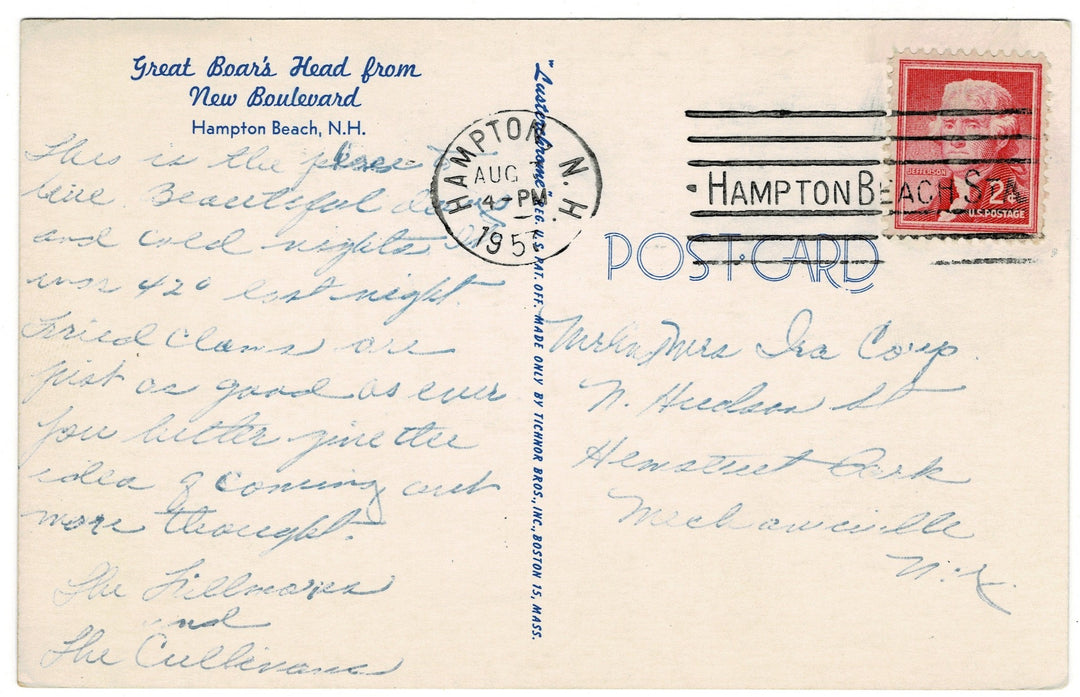 Great Boar's Head from
New Boulevard
Hampton Beach, N.H.
This is the place to
live. Beautiful days
and cold nights. It
was 42° last night.
Fried clams are
just as good as ever
You better give the
idea of coming out
more thought.
The Fillmores
and
The Cullinans
"Lusterchrome" REG. U.S. PAT. OFF. MADE ONLY BY TICHNOR BROS., INC., BOSTON 15, MASS.
HAMPTON, N.H.
AUG
4 - PM
195
HAMPTON BEACH STA
JEFFERSON
2¢
U.S. POSTAGE
POST CARD
Mr. & Mrs Ira
N. Hudson St
Hemstreet Park
Mechanicville
N.Y.